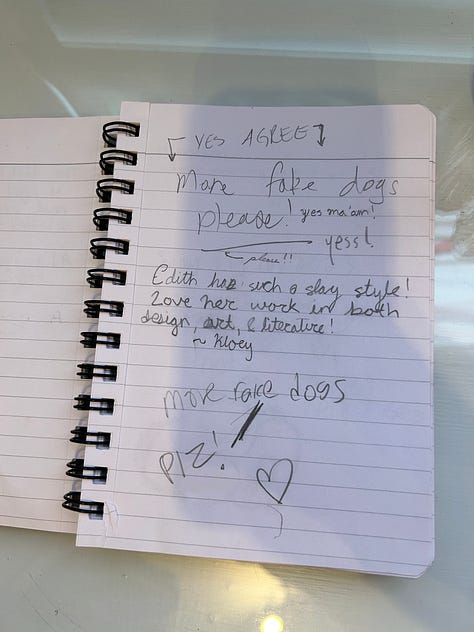 YES AGREE
More fake dogs
please! yes ma'am!
yess!
please!!
Edith has such a slay style!
Love her work in both
design, art, & literature!
~ Kloey
more fake dogs
plz!